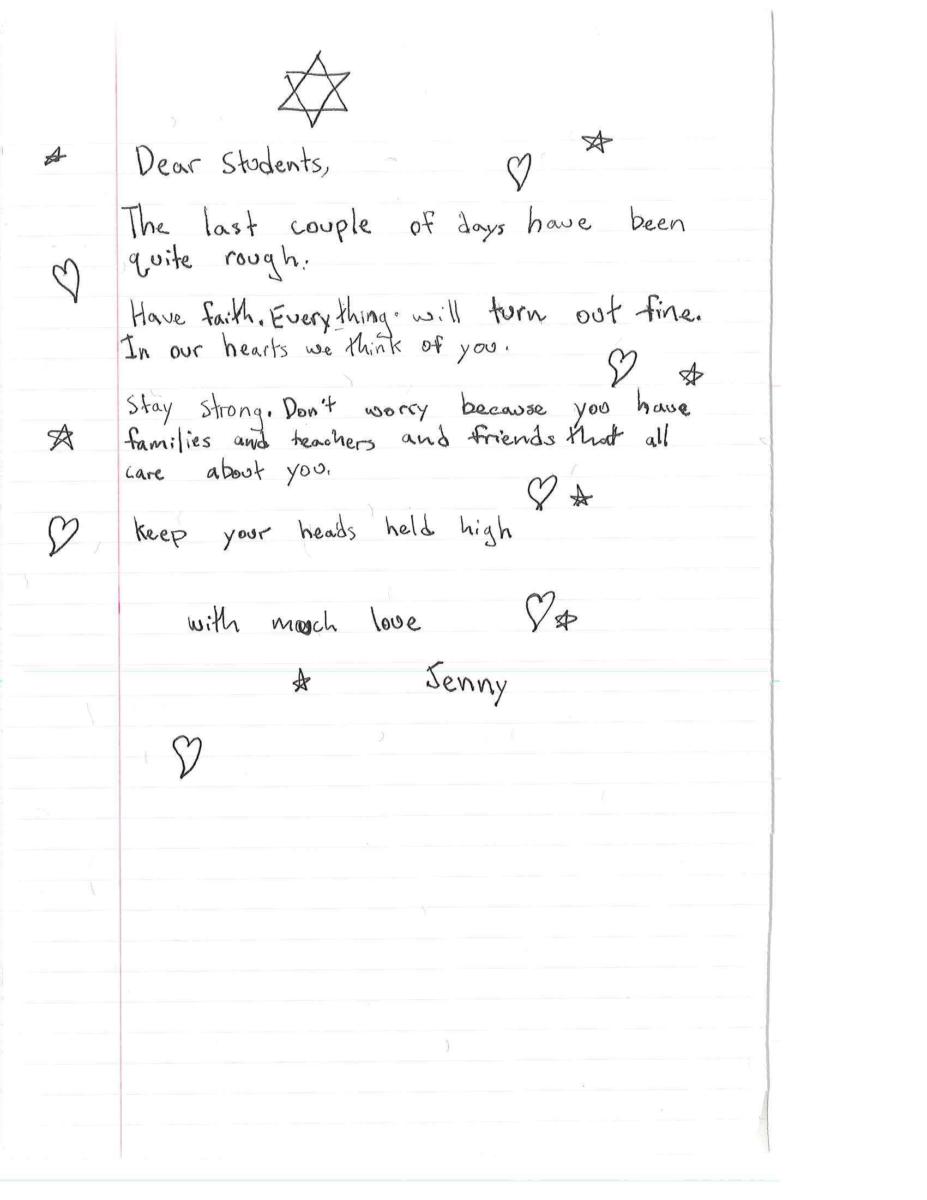 Dear Students,
The last couple of days have been
quite rough.
Have faith. Everything will turn out fine.
In our hearts we think of you.
Stay strong. Don't worry because you have
families and teachers and friends that all
care about you.
Keep your heads held high
with much love
Jenny